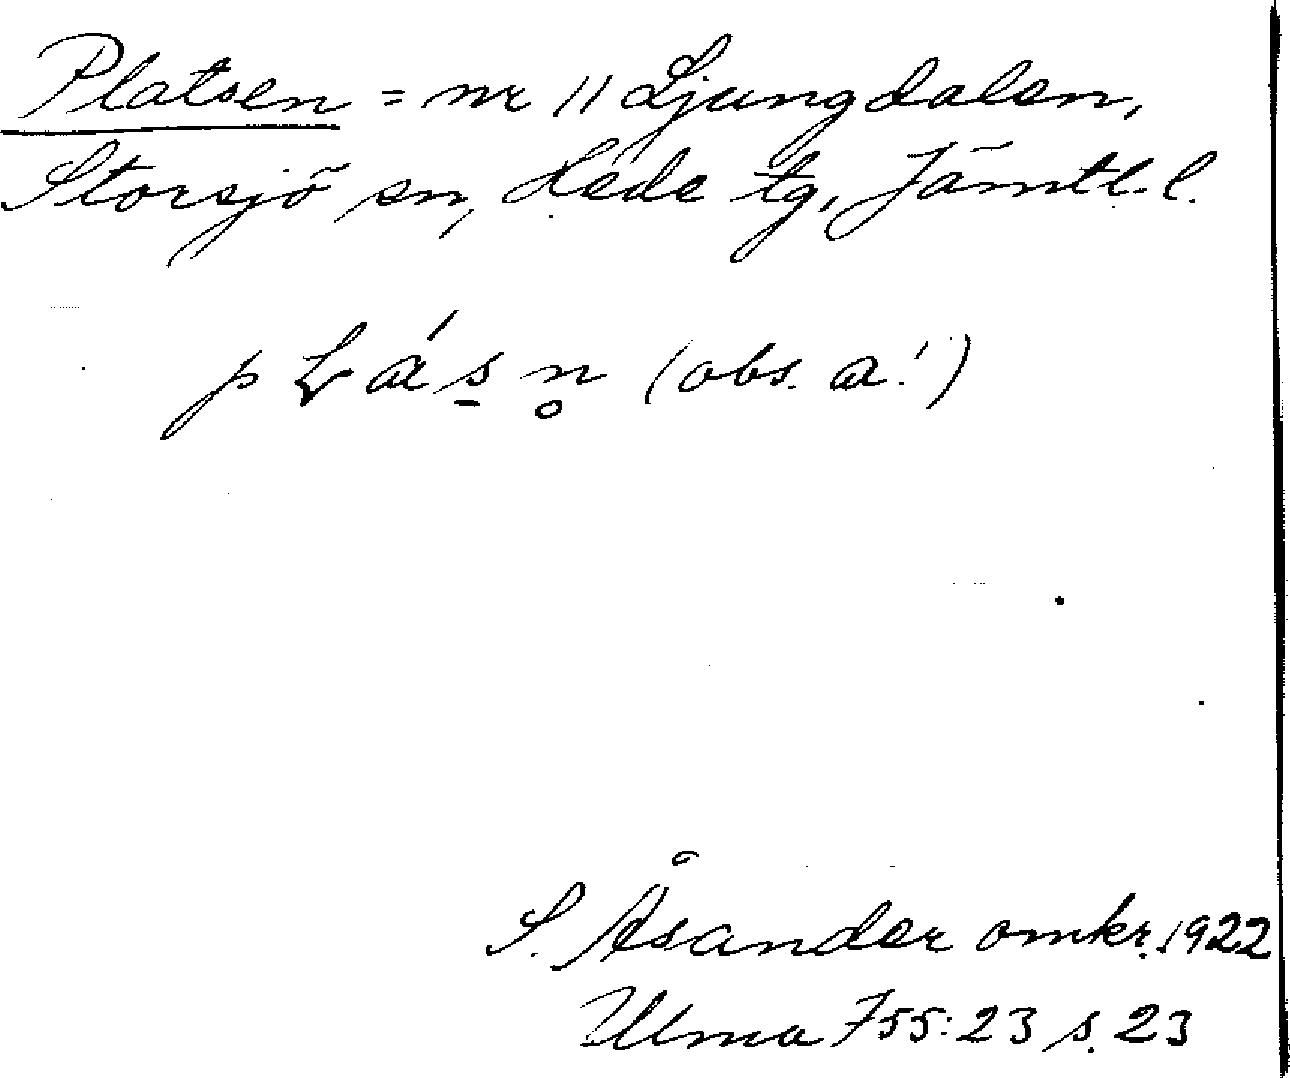 Platsen = nr 11 Ljungdalen,
Storsjö sn, Hede tg, Jämtl. l.
p L á s̱ n̥ (obs. a!)
S. Åsander omkr. 1922
Ulma 755:23 s. 23